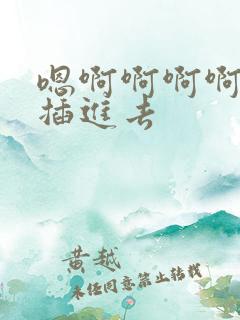 嗯啊啊啊啊
插進去
黄越
未经同意禁止转载